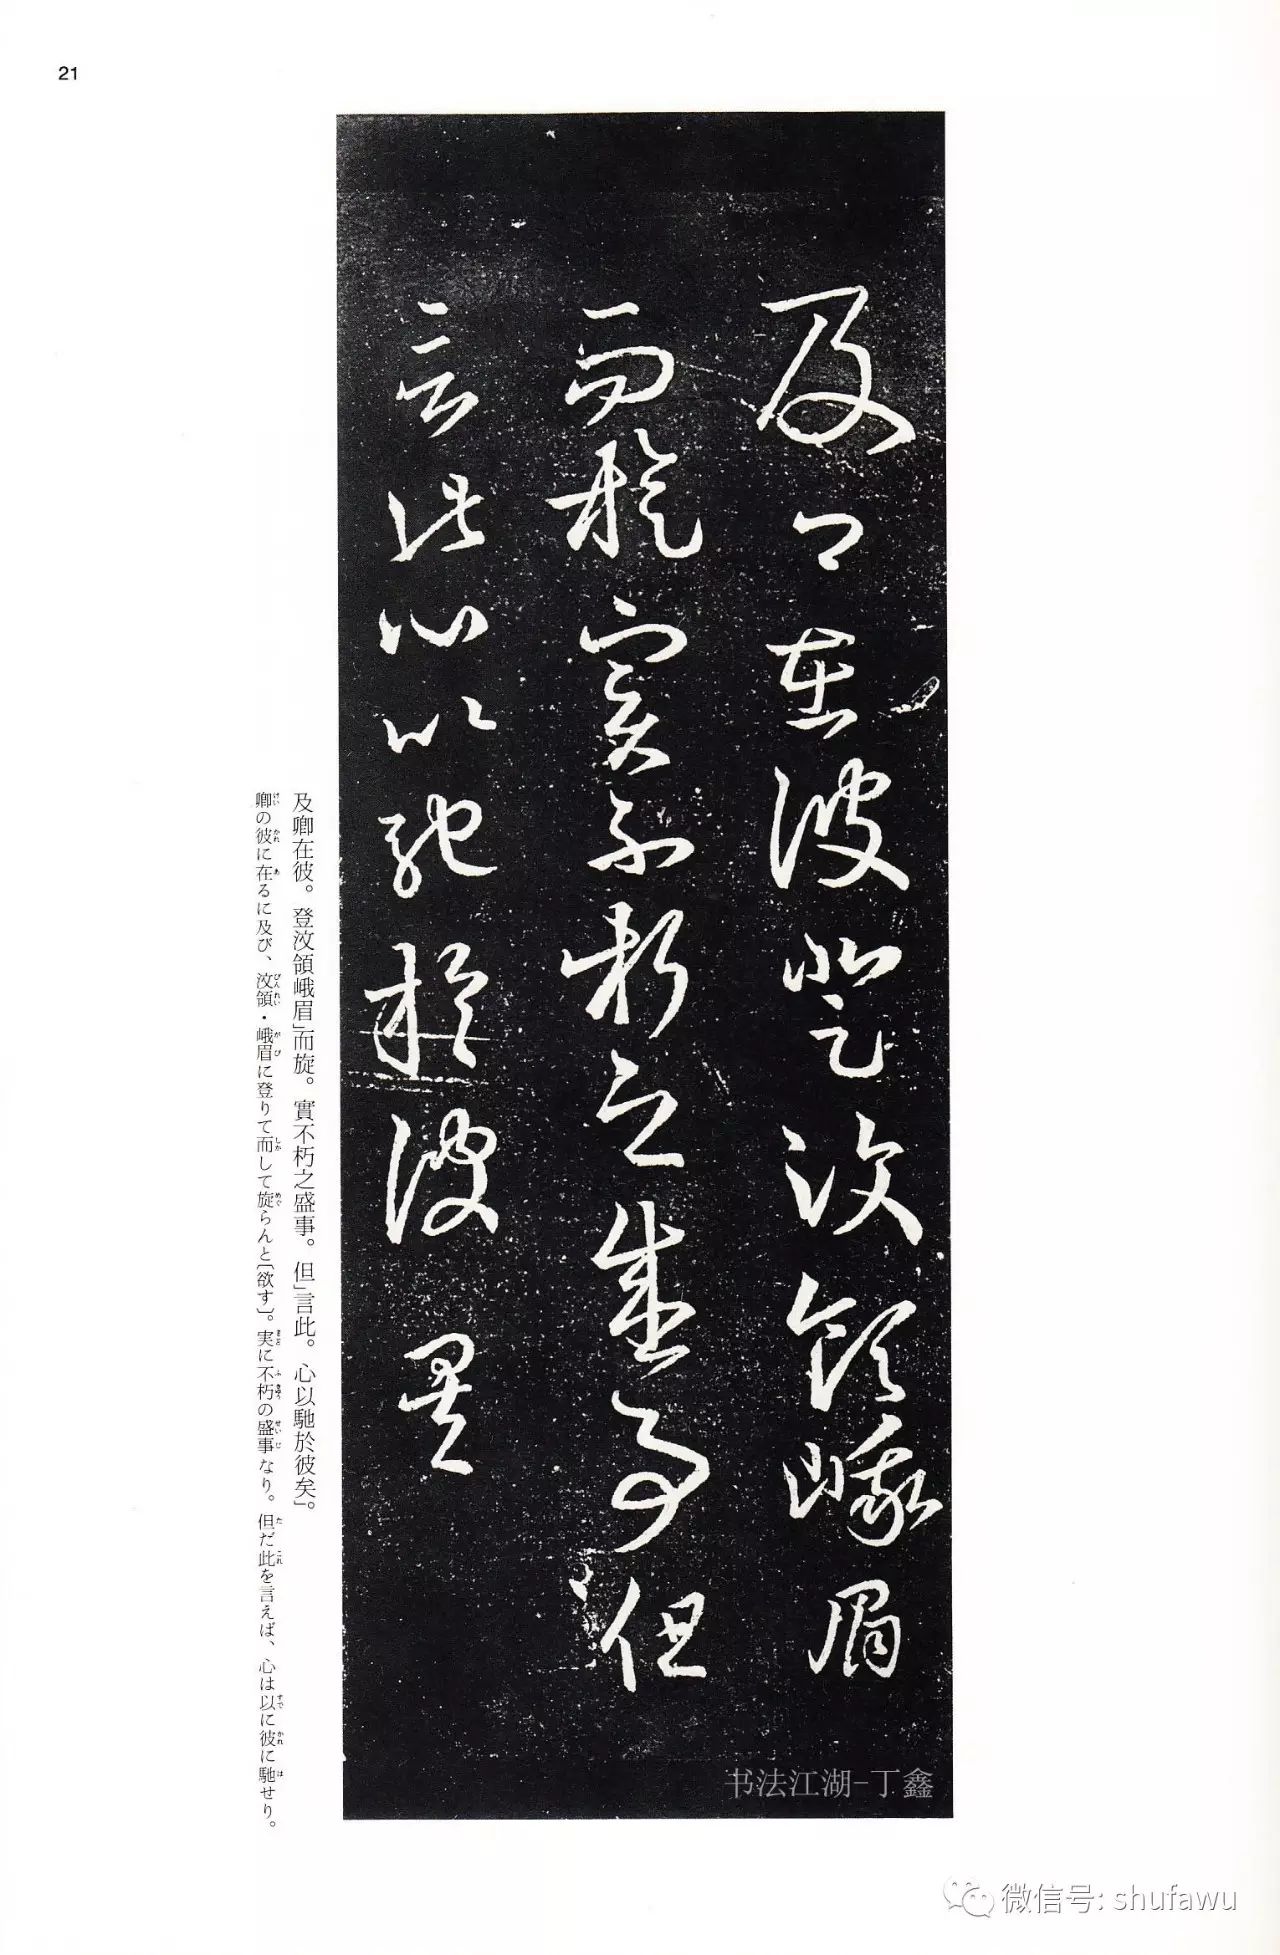 21
及卿在彼登汶領峨眉
而旋實不朽之盛事但
言此心以馳於彼矣
及卿在彼。登汶領峨眉」而旋。實不朽之盛事。但」言此。心以馳於彼矣」。
卿の彼に在るに及び、汶領・峨眉に登りて而して旋らんと〔欲す〕。実に不朽の盛事なり。但だ此を言えば、心は以に彼に馳せり。
书法江湖-丁鑫
微信号: shufawu